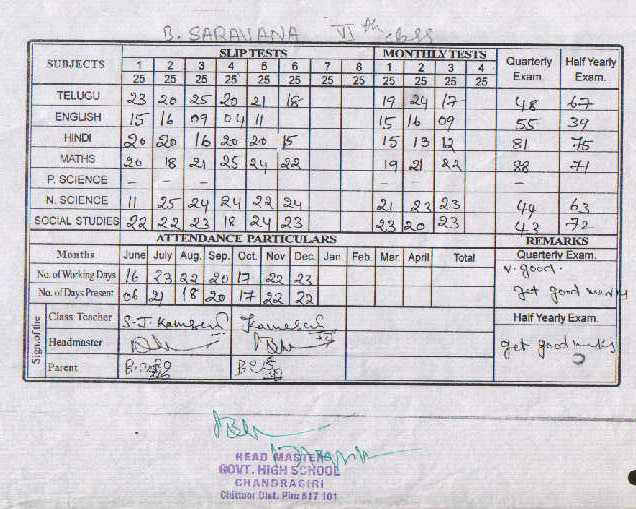 B. SARAVANA VI th
SUBJECTS SLIP TESTS MONTHLY TESTS Quarterly Exam. Half Yearly Exam.
1 2 3 4 5 6 7 8 1 2 3 4
25 25 25 25 25 25 25 25 25 25 25 25
TELUGU 23 20 25 20 21 18 19 24 17 48 67
ENGLISH 15 16 09 04 11 15 16 09 55 39
HINDI 20 20 16 20 20 15 15 13 12 81 75
MATHS 20 18 21 25 24 22 19 21 22 88 71
P. SCIENCE - - - - -
N. SCIENCE 11 25 24 24 22 24 21 22 23 44 63
SOCIAL STUDIES 22 22 23 18 24 23 23 20 23 42 72
ATTENDANCE PARTICULARS REMARKS
Months June July Aug. Sep. Oct. Nov Dec. Jan Feb. Mar April Total Quarterly Exam.
No. of Working Days 16 23 22 20 17 22 23 v. good.
No. of Days Present 06 21 18 20 17 22 22 get good marks
Sign. of the Class Teacher Half Yearly Exam.
Headmaster get good marks
Parent
HEAD MASTER
GOVT. HIGH SCHOOL
CHANDRAGIRI
Chittoor Dist. Pin: 517 101